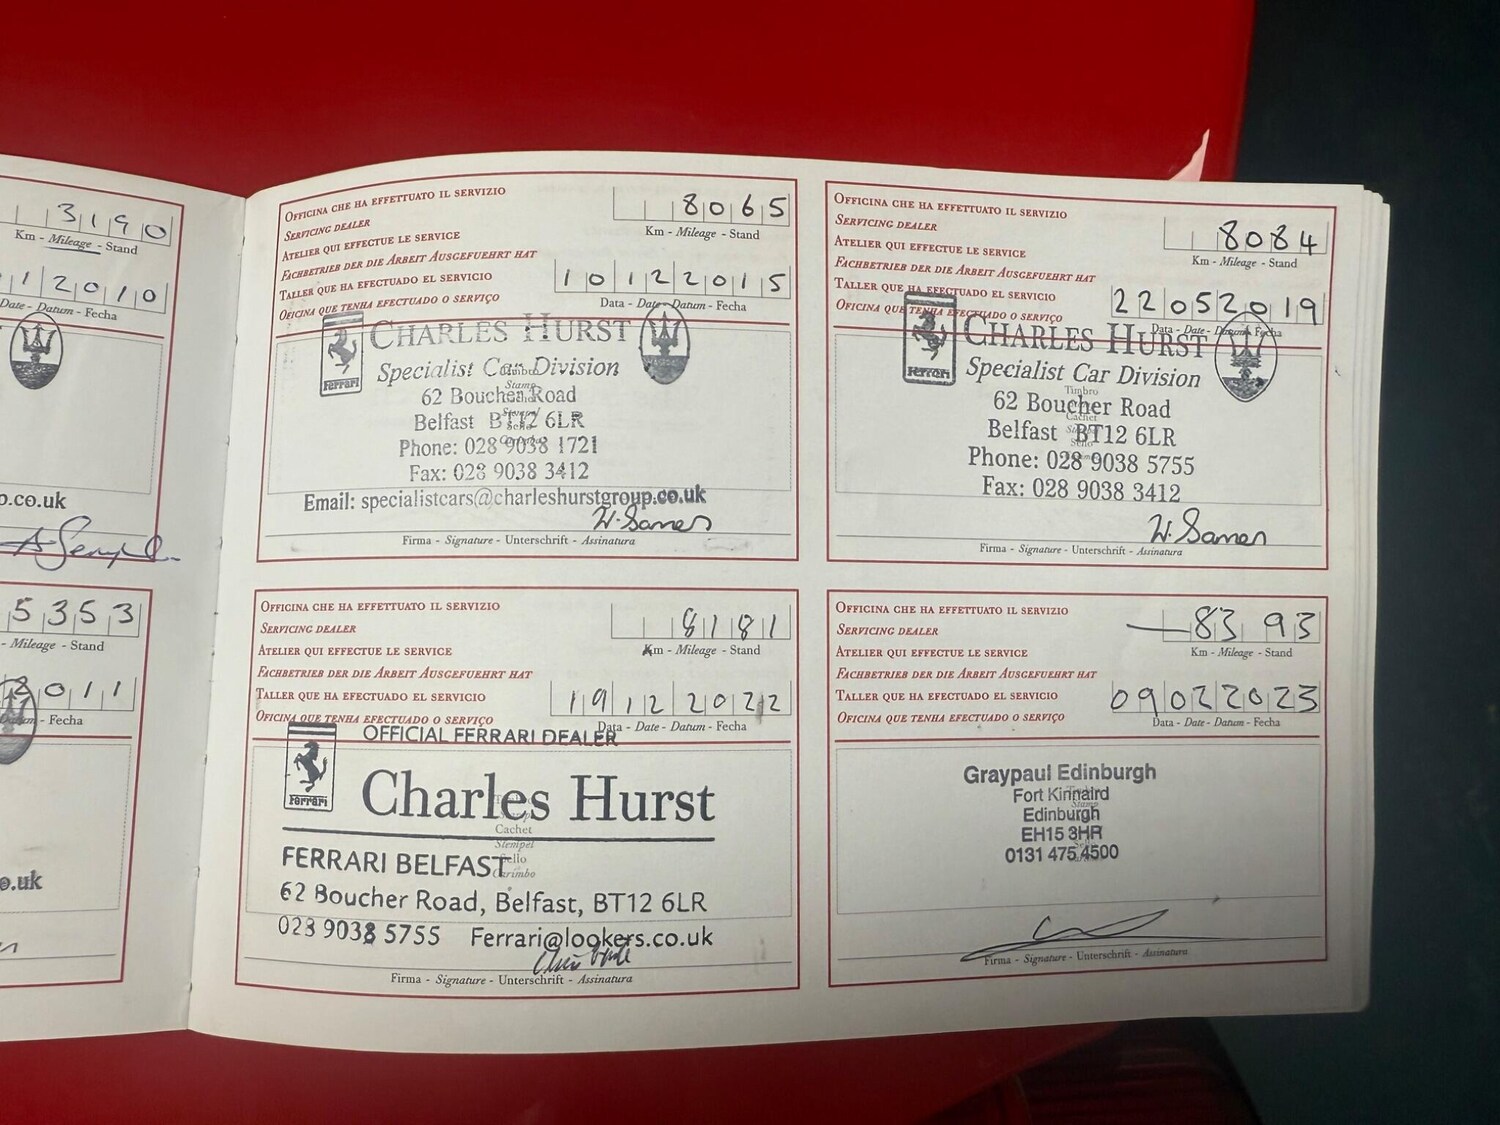 3190
Km - Mileage - Stand
12010
Date - Datum - Fecha
p.co.uk
5353
- Mileage - Stand
2011
Datum - Fecha
o.uk
Officina che ha effettuato il servizio
Servicing dealer
Atelier qui effectue le service
Fachbetrieb der die Arbeit Ausgefuehrt hat
Taller que ha efectuado el servicio
Oficina que tenha efectuado o serviço
8065
Km - Mileage - Stand
10122015
Data - Date - Datum - Fecha
Ferrari
Charles Hurst
Specialist Car Division
62 Boucher Road
Belfast BT12 6LR
Phone: 028 9038 1721
Fax: 028 9038 3412
Email: specialistcars@charleshurstgroup.co.uk
Firma - Signature - Unterschrift - Assinatura
Officina che ha effettuato il servizio
Servicing dealer
Atelier qui effectue le service
Fachbetrieb der die Arbeit Ausgefuehrt hat
Taller que ha efectuado el servicio
Oficina que tenha efectuado o serviço
8084
Km - Mileage - Stand
22052019
Data - Date - Datum - Fecha
Ferrari
Charles Hurst
Specialist Car Division
Timbro
62 Boucher Road
Cachet
Belfast BT12 6LR
Phone: 028 9038 5755
Fax: 028 9038 3412
Firma - Signature - Unterschrift - Assinatura
Officina che ha effettuato il servizio
Servicing dealer
Atelier qui effectue le service
Fachbetrieb der die Arbeit Ausgefuehrt hat
Taller que ha efectuado el servicio
Oficina que tenha efectuado o serviço
8181
Km - Mileage - Stand
19122022
Data - Date - Datum - Fecha
OFFICIAL FERRARI DEALER
Ferrari
Charles Hurst
Cachet
Stempel
Sello
Carimbo
FERRARI BELFAST
62 Boucher Road, Belfast, BT12 6LR
028 9038 5755 Ferrari@lookers.co.uk
Firma - Signature - Unterschrift - Assinatura
Officina che ha effettuato il servizio
Servicing dealer
Atelier qui effectue le service
Fachbetrieb der die Arbeit Ausgefuehrt hat
Taller que ha efectuado el servicio
Oficina que tenha efectuado o serviço
8393
Km - Mileage - Stand
09022023
Data - Date - Datum - Fecha
Graypaul Edinburgh
Fort Kinnaird
Edinburgh
EH15 3HR
0131 475 4500
Firma - Signature - Unterschrift - Assinatura